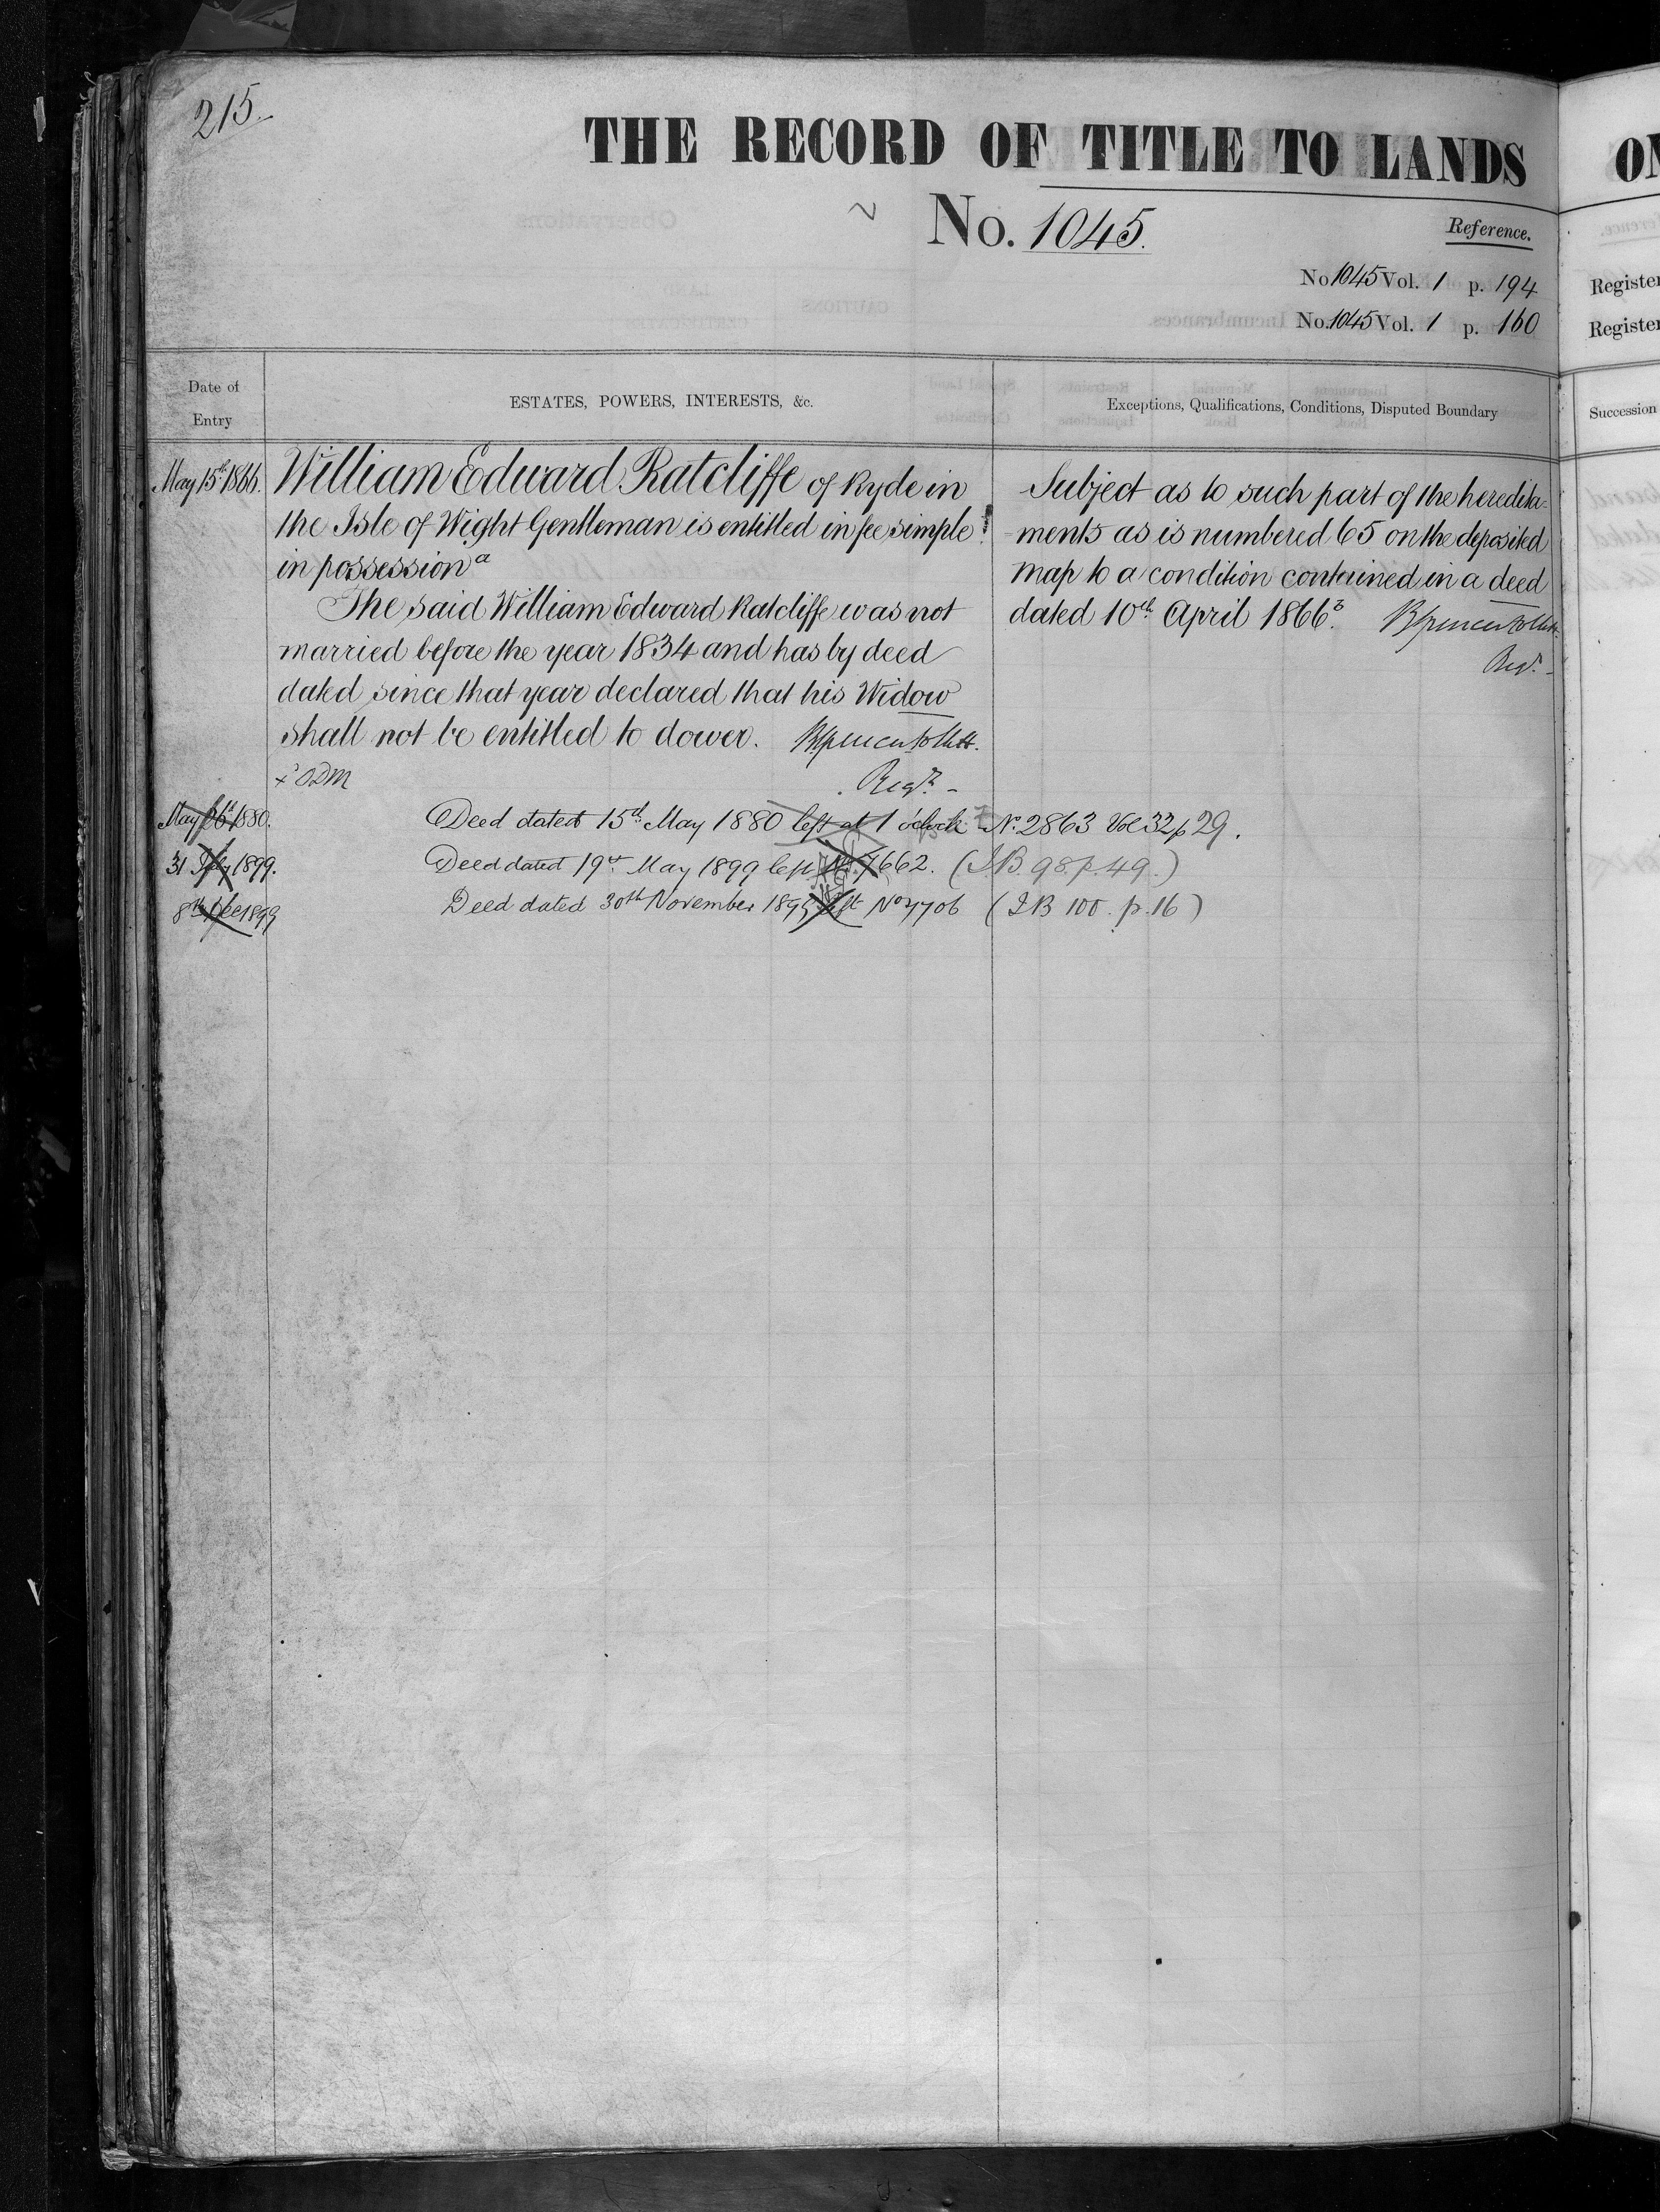 215.
THE RECORD OF TITLE TO LANDS
No. 1045.
Reference.
No 1045 Vol. 1 p. 194
No. 1045 Vol. 1 p. 160
Register
Register
Date of
Entry
ESTATES, POWERS, INTERESTS, &c.
Exceptions, Qualifications, Conditions, Disputed Boundary
Succession
May 15th 1866.
William Edward Ratcliffe of Ryde in
the Isle of Wight Gentleman is entitled in fee simple
in possession a
The said William Edward Ratcliffe was not
married before the year 1834 and has by deed
dated since that year declared that his Widow
shall not be entitled to dower.
Regr.
Subject as to such part of the heredita-
ments as is numbered 65 on the deposited
map to a condition contained in a deed
dated 10th April 1866. b
Regr.
May 1880.
Deed dated 15th May 1880 left at 1 o'clock No. 2863 Vol 32 p 29.
31 1899.
Deed dated 19th May 1899 left 7662. (I.B. 98. p. 49.)
8th Dec 1899
Deed dated 30th November 1899 left No 7706 (I B 100. p. 16)